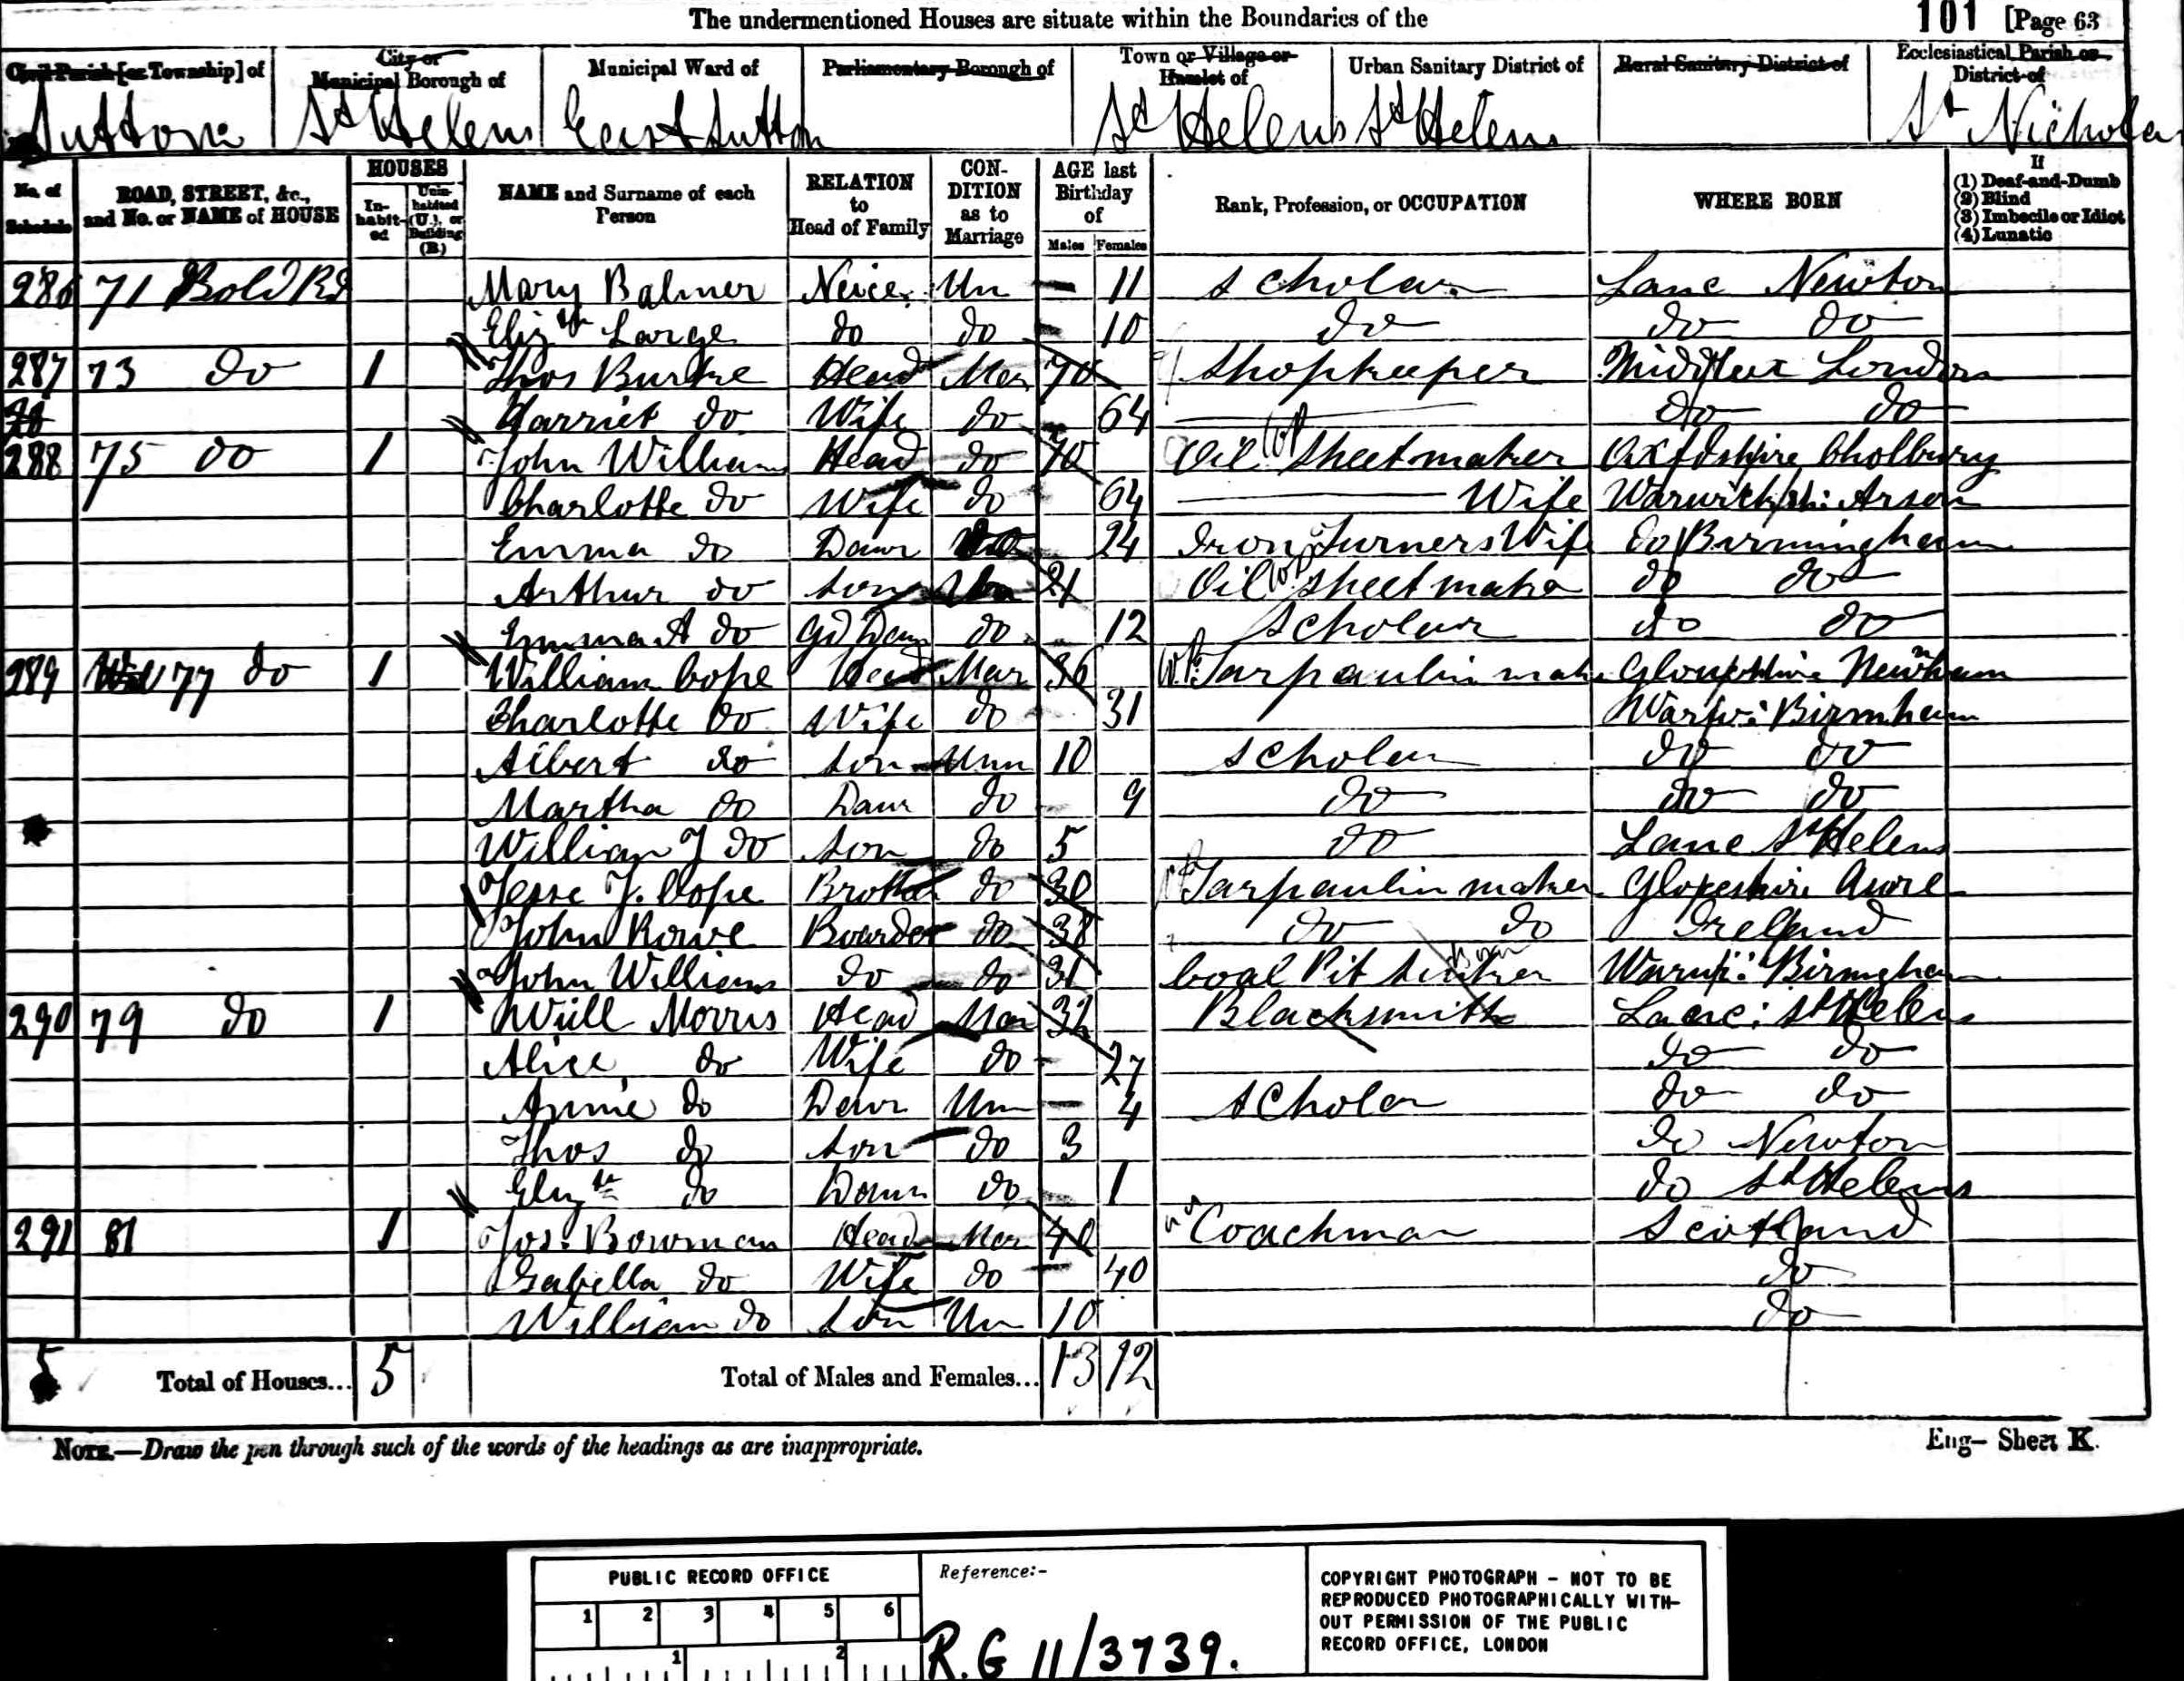 The undermentioned Houses are situate within the Boundaries of the
101 [Page 63
Civil Parish [or Township] of
City or Municipal Borough of
Municipal Ward of
Parliamentary Borough of
Town or Village or Hamlet of
Urban Sanitary District of
Rural Sanitary District of
Ecclesiastical Parish or District of
Sutton St Helens East Sutton St Helens St Helens St Nicholas
No. of Schedule
ROAD, STREET, &c., and No. or NAME of HOUSE
HOUSES
In-habit-ed
Unin-habited (U.), or Building (B.)
NAME and Surname of each Person
RELATION to Head of Family
CON-DITION as to Marriage
AGE last Birthday of
Males Females
Rank, Profession, or OCCUPATION
WHERE BORN
If
(1) Deaf-and-Dumb
(2) Blind
(3) Imbecile or Idiot
(4) Lunatic
286 71 Bold Rd Mary Balmer Neice Un 11 Scholar Lanc Newton
Elizth Large do do 10 do do do
287 73 do 1 Thos Burke Head Mar 70 Shopkeeper Middlesex London
Harriet do Wife do 64 do do
288 75 do 1 John Williams Head do 70 Oil Sheet maker Oxfdshire Cholbury
Charlotte do Wife do 64 Wife Warwicksh: Arson
Emma do Daur 24 Iron Turners Wife do Birmingham
Arthur do Son Un 21 Oil Sheet maker do do
Emma A do Gd Daur do 12 Scholar do do
289 77 do 1 William Cope Head Mar 36 Tarpaulin maker Newnham
Charlotte do Wife do 31 Birmham
Albert do Son Unn 10 Scholar do do
Martha do Daur do 9 do do do
William J do Son do 5 do Lanc St Helens
Jesse J. Cope Brother do 30 Tarpaulin maker Awre
John Rowe Boarder do 38 do do Ireland
John Williams do do 31 Coal Pit Sinker Birmgham
290 79 do 1 Will Morris Head Mar 32 Blacksmith Lanc: St Helens
Alice do Wife do 27 do do
Annie do Daur Un 4 Scholar do do
Thos do Son do 3 do Newton
Elizth do Daur do 1 do St Helens
291 81 1 Jos: Bowman Head Mar 40 Coachman Scotland
Isabella do Wife do 40 do
William do Son Un 10 do
5 Total of Houses... 5 Total of Males and Females... 13 12
NOTE.—Draw the pen through such of the words of the headings as are inappropriate.
Eng— Sheet K.
PUBLIC RECORD OFFICE
1 2 3 4 5 6
1 2
Reference:-
R.G 11/3739.
COPYRIGHT PHOTOGRAPH - NOT TO BE
REPRODUCED PHOTOGRAPHICALLY WITH-
OUT PERMISSION OF THE PUBLIC
RECORD OFFICE, LONDON